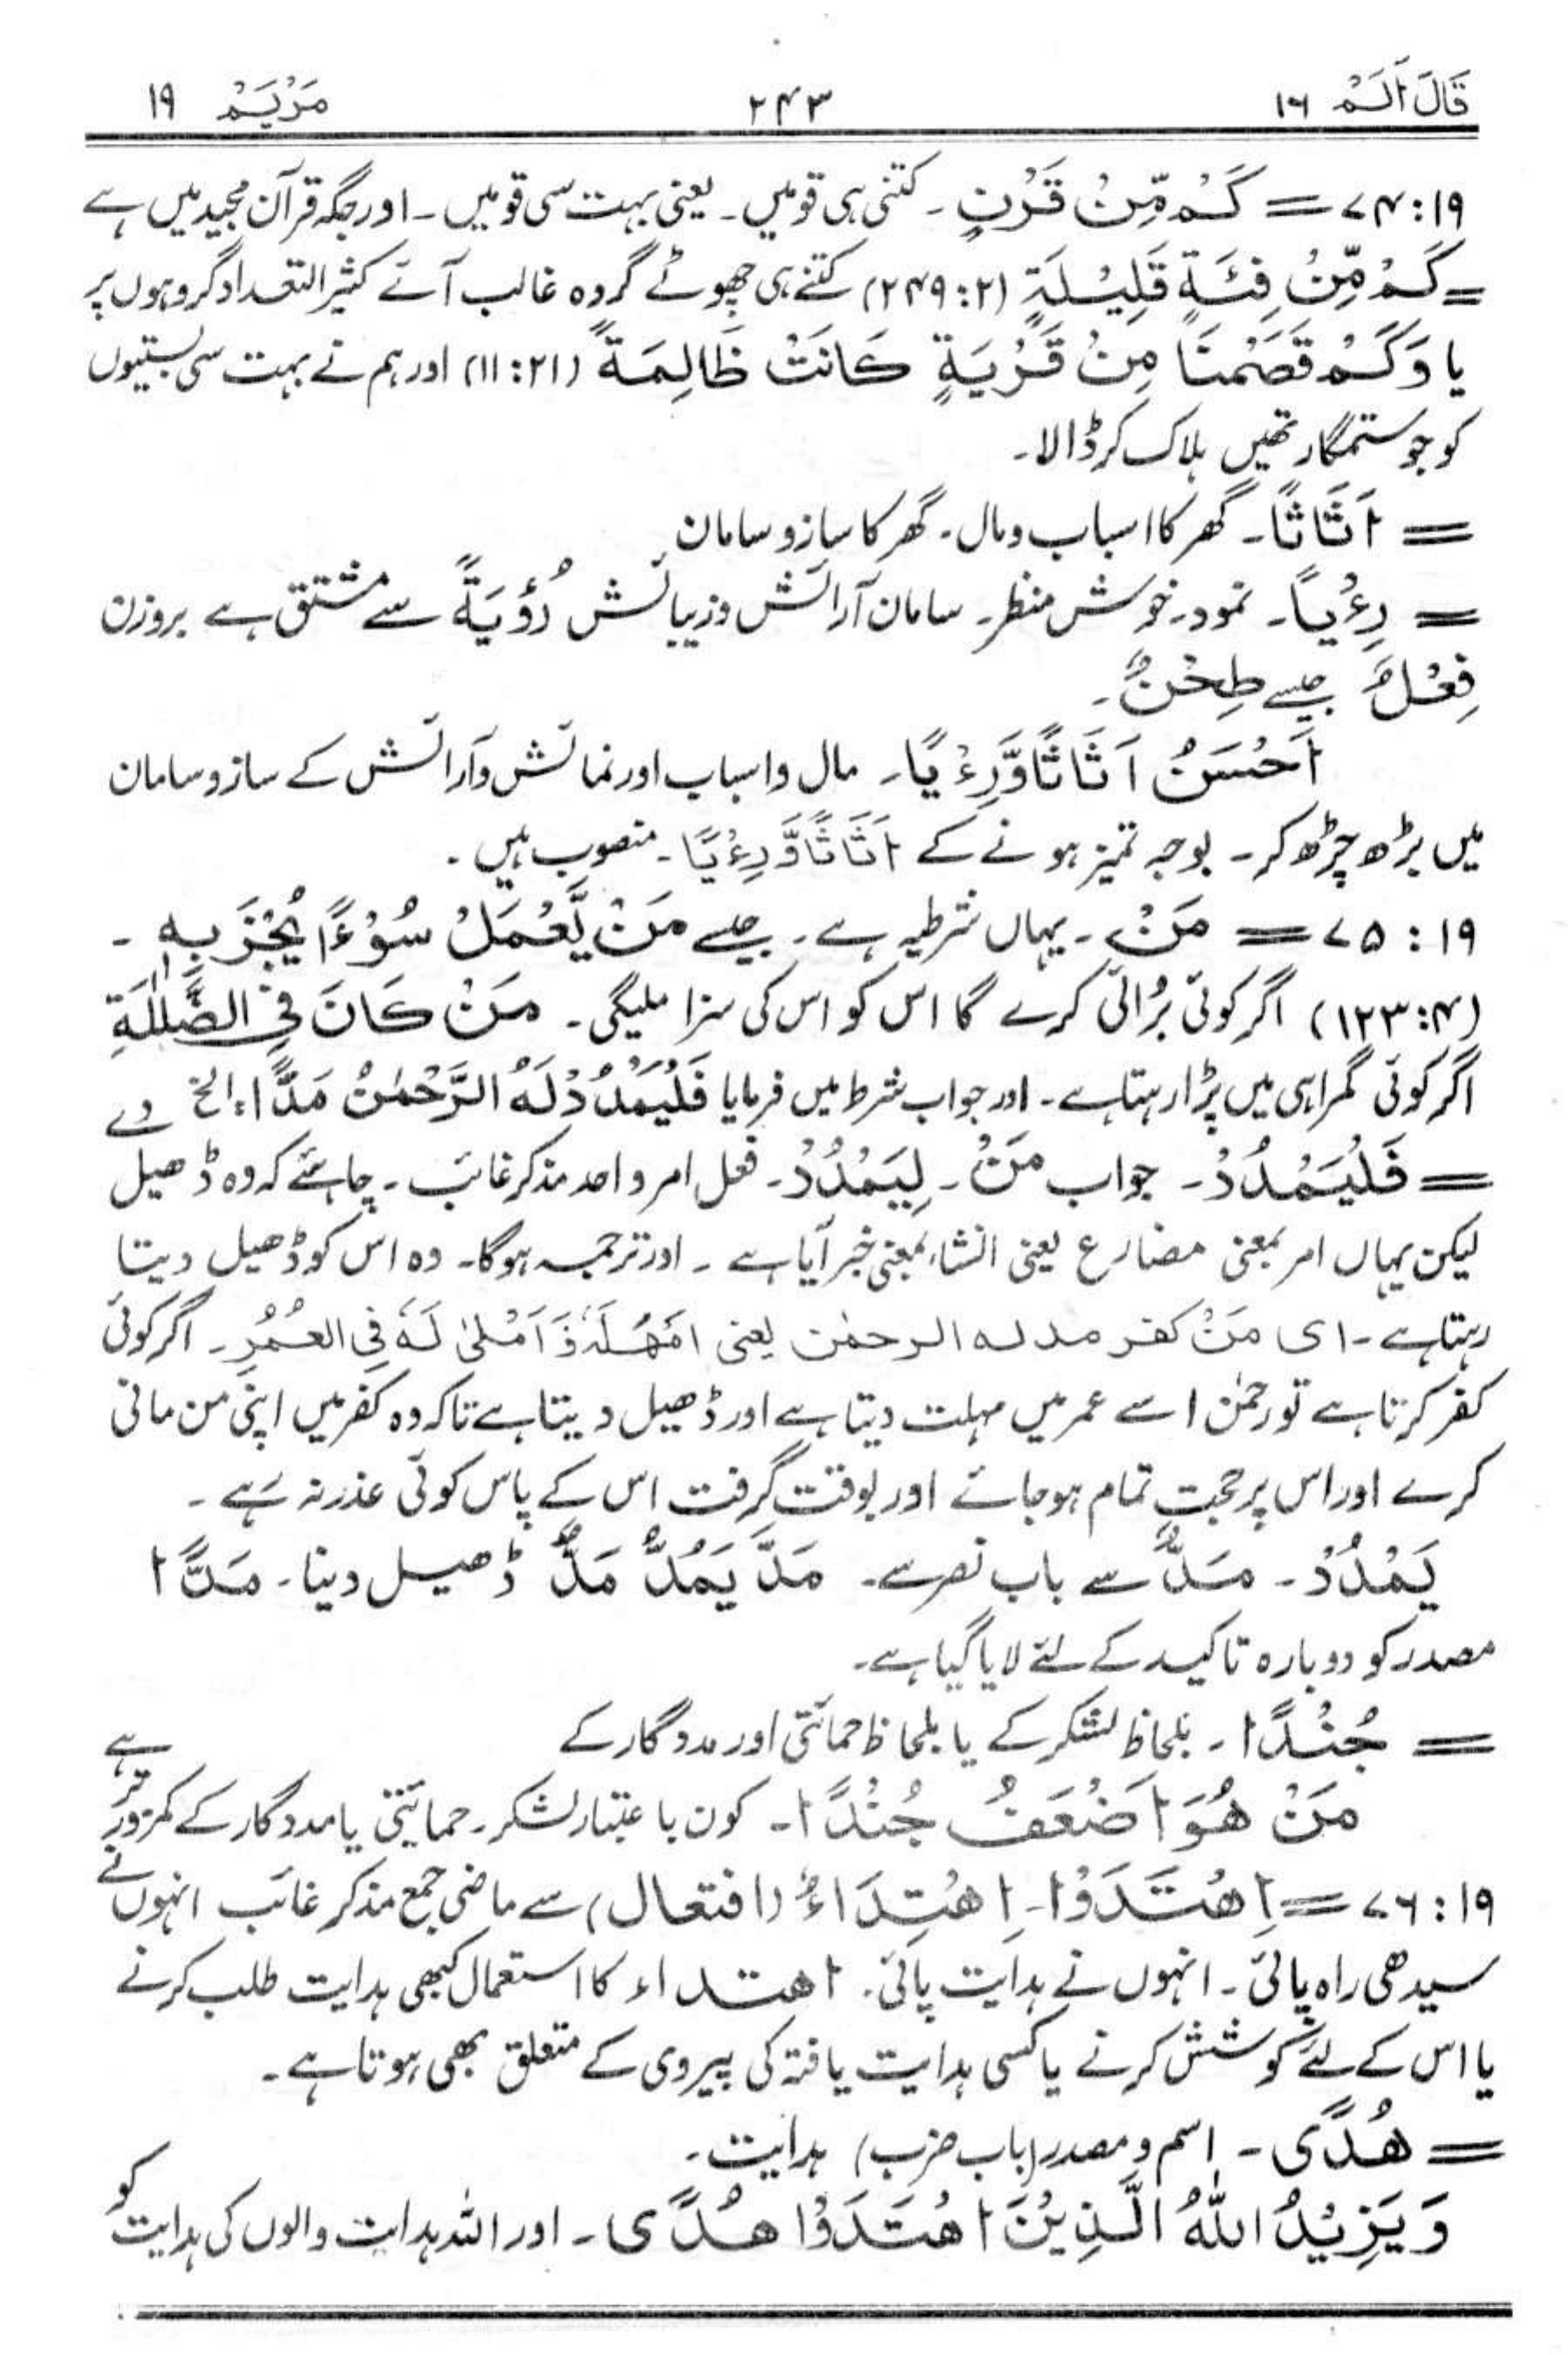 قَالَ اَلَمْ ۱۶ ۲۴۳ مَرْیَمْ ۱۹
۷۴:۱۹ = کَمْ مِّنْ قَرْنٍ ۔ کتنی ہی قومیں ۔ یعنی بہت سی قومیں ۔ اور جگہ قرآن مجید میں ہے
= کَمْ مِّنْ فِئَۃٍ قَلِیْلَۃٍ (۲۴۹:۲) کتنے ہی چھوٹے گروہ غالب آئے کثیر التعداد گروہوں پر
یا وَکَمْ قَصَمْنَا مِنْ قَرْیَۃٍ کَانَتْ ظَالِمَۃً (۱۱:۲۱) اور ہم نے بہت سی بستیوں
کو جو ستمگار تھیں ہلاک کر ڈالا۔
= اَثَاثًا۔ گھر کا اسباب و مال۔ گھر کا ساز و سامان
= رِءْیًا۔ نمود۔ خوش منظر۔ سامان آرائش و زیبائش رُؤْیَۃً سے مشتق ہے بروزن
فِعْلٌ جیسے طِحْنٌ۔
اَحْسَنُ اَثَاثًا وَّرِءْیًا۔ مال و اسباب اور نمائش و آرائش کے ساز و سامان
میں بڑھ چڑھ کر۔ بوجہ تمیز ہونے کے اَثَاثًا وَّرِءْیًا۔ منصوب ہیں۔
۷۵:۱۹ = مَنْ۔ یہاں شرطیہ ہے۔ جیسے مَنْ یَّعْمَلْ سُوْءًا یُّجْزَ بِہٖ ۔
(۱۲۳:۴) اگر کوئی بُرائی کرے گا اس کو اس کی سزا ملیگی۔ مَنْ کَانَ فِی الضَّلٰلَۃِ
اگر کوئی گمراہی میں پڑا رہتا ہے۔ اور جواب شرط میں فرمایا فَلْیَمْدُدْ لَہُ الرَّحْمٰنُ مَدًّا، الخ دے
= فَلْیَمْدُدْ۔ جواب مَنْ۔ لِیَمْدُدْ۔ فعل امر واحد مذکر غائب۔ چاہئے کہ وہ ڈھیل
لیکن یہاں امر بمعنی مضارع یعنی انشاء بمعنی خبر آیا ہے ۔ اور ترجمہ ہوگا۔ وہ اس کو ڈھیل دیتا
رہتا ہے۔ ای مَنْ کفر مد لہ الرحمٰن یعنی امْھَلَہٗ وَ اَمْلیٰ لَہٗ فِی الْعُمُرِ۔ اگر کوئی
کفر کرتا ہے تو رحمٰن اسے عمر میں مہلت دیتا ہے اور ڈھیل دیتا ہے تاکہ وہ کفر میں اپنی من مانی
کرے اور اس پر حجت تمام ہو جائے اور بوقت گرفت اس کے پاس کوئی عذر نہ رہے ۔
یَمْدُدْ۔ مَدٌّ سے باب نصر سے۔ مَدَّ یَمُدُّ مَدٌّ ڈھیل دینا۔ مَدًّا
مصدر کو دوبارہ تاکید کے لئے لایا گیا ہے۔
= جُنْدًا۔ بلحاظ لشکر کے یا بلحاظ حمائتی اور مددگار کے
مَنْ ھُوَ اَضْعَفُ جُنْدًا۔ کون باعتبار لشکر۔ حمائیتی یا مددگار کے کمزور تر ہے
۷۶:۱۹ = اِھْتَدَوْا۔ اِھْتِدَاءٌ (افتعال) سے ماضی جمع مذکر غائب انہوں نے
سیدھی راہ پائی ۔ انہوں نے ہدایت پائی۔ اھتداء کا استعمال کبھی ہدایت طلب کرنے
یا اس کے لئے کوشش کرنے یا کسی ہدایت یافتہ کی پیروی کے متعلق بھی ہوتا ہے۔
= ھُدًی ۔ اسم و مصدر (باب ضرب) ہدایت۔
وَیَزِیْدُ اللّٰہُ الَّذِیْنَ اھْتَدَوْا ھُدًی۔ اور اللہ ہدایت والوں کی ہدایت کو